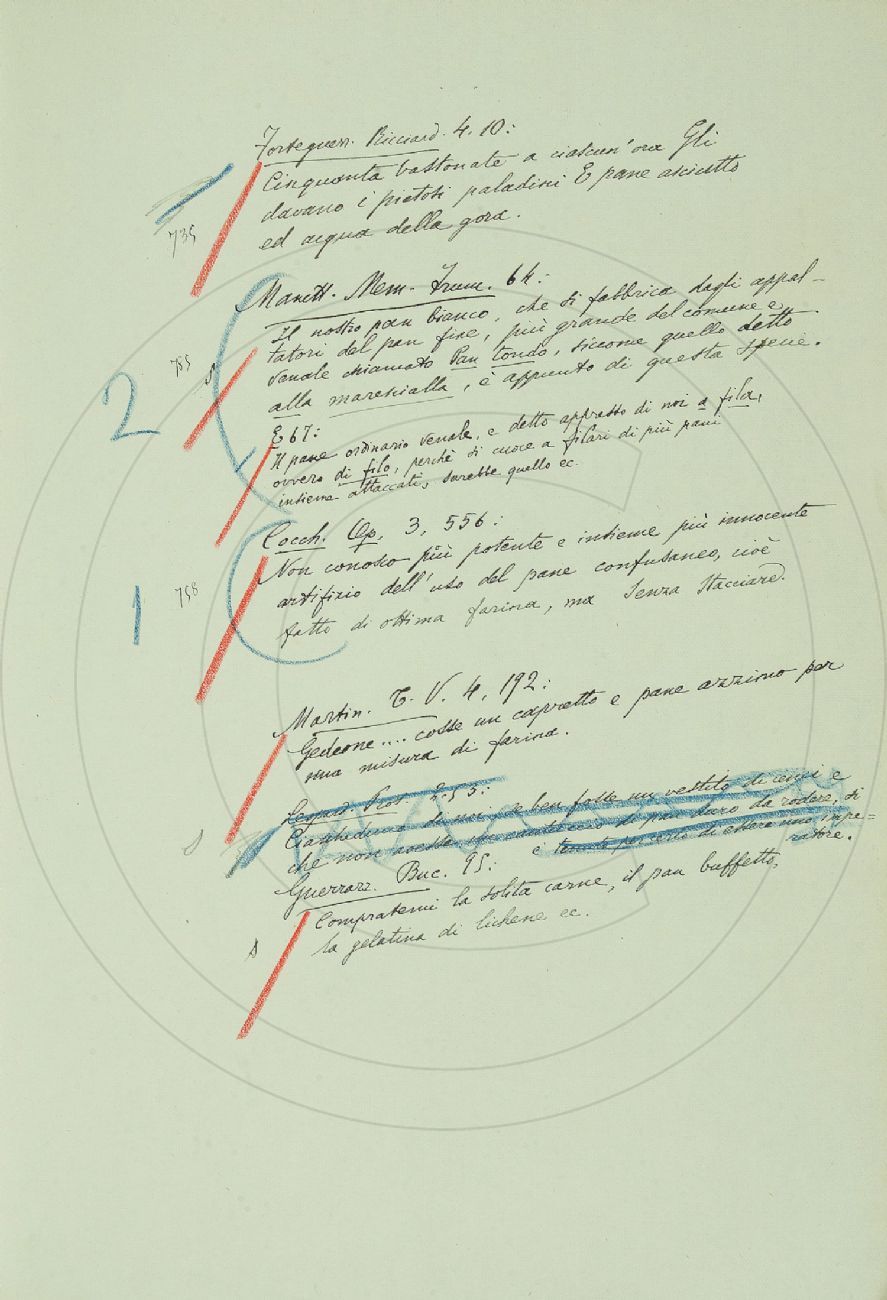 Forteguerr. Ricciard. 4. 10:
Cinquanta bastonate a ciascun' ora Gli
davano i pietosi paladini E pane asciutto
ed acqua della gora.
735
Manett. Mem. Frum. 64:
Il nostro pan bianco, che si fabbrica dagli appal-
tatori del pan fine, più grande del comune e
venale chiamato Pan tondo, siccome quello detto
alla marescialla, è appunto di questa specie.
755
2
E 67:
Il pane ordinario venale, è detto appresso di noi a fila,
ovvero di filo, perchè si cuoce a filari di più pani
insieme attaccati, sarebbe quello ec.
Cocch. Op. 3, 556:
Non conosco più potente e insieme più innocente
artifizio dell'uso del pane confusaneo, cioè
fatto di ottima farina, ma senza stacciare.
1
758
Martin. T. V. 4, 192:
Gedeone.... cosse un capretto e pane azzimo per
una misura di farina.
Leopard. Pros. 2. 53:
Ciascheduno di noi, se ben fosse un vestito di cenci e
che non avesse un di pan duro da rodere, si
è tenuto per certo di essere uno impe-
ratore.
Guerrazz. Buc. 95:
Compratemi la solita carne, il pan buffetto,
la gelatina di lichene ec.